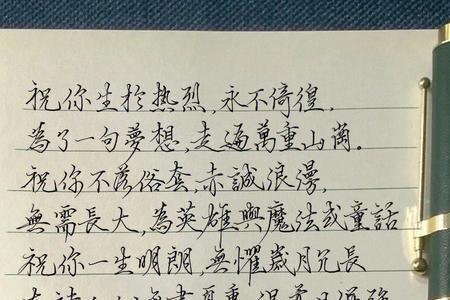 祝你生於熱烈,永不徬徨.
為了一句夢想,走遍萬重山崗.
祝你不落俗套,赤誠浪漫,
無需長大,為英雄與魔法或童話
祝你一生明朗,無懼歲月冗長